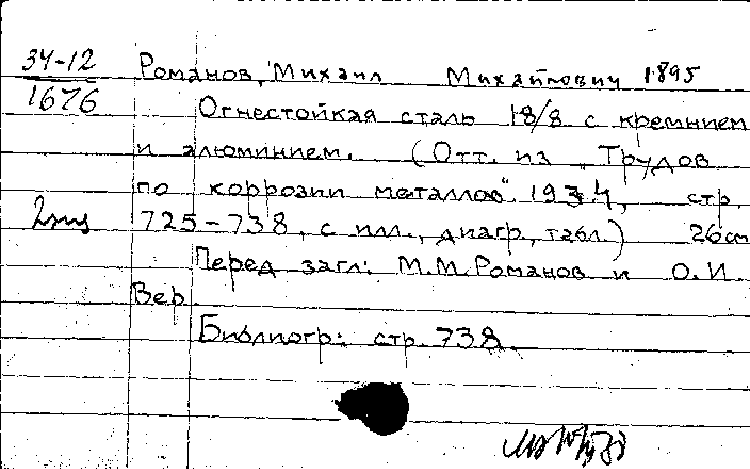 34-12
1676
Романов, Михаил Михайлович 1895
Огнестойкая сталь 18/8 с кремнием
и алюминием. (Отт. из "Трудов
по коррозии металлов". 1934, стр.
2 экз
725-738, с илл., диагр., табл.) 26 см
Перед загл.: М.М. Романов и О.И.
Вер
Библиогр.: стр. 738.